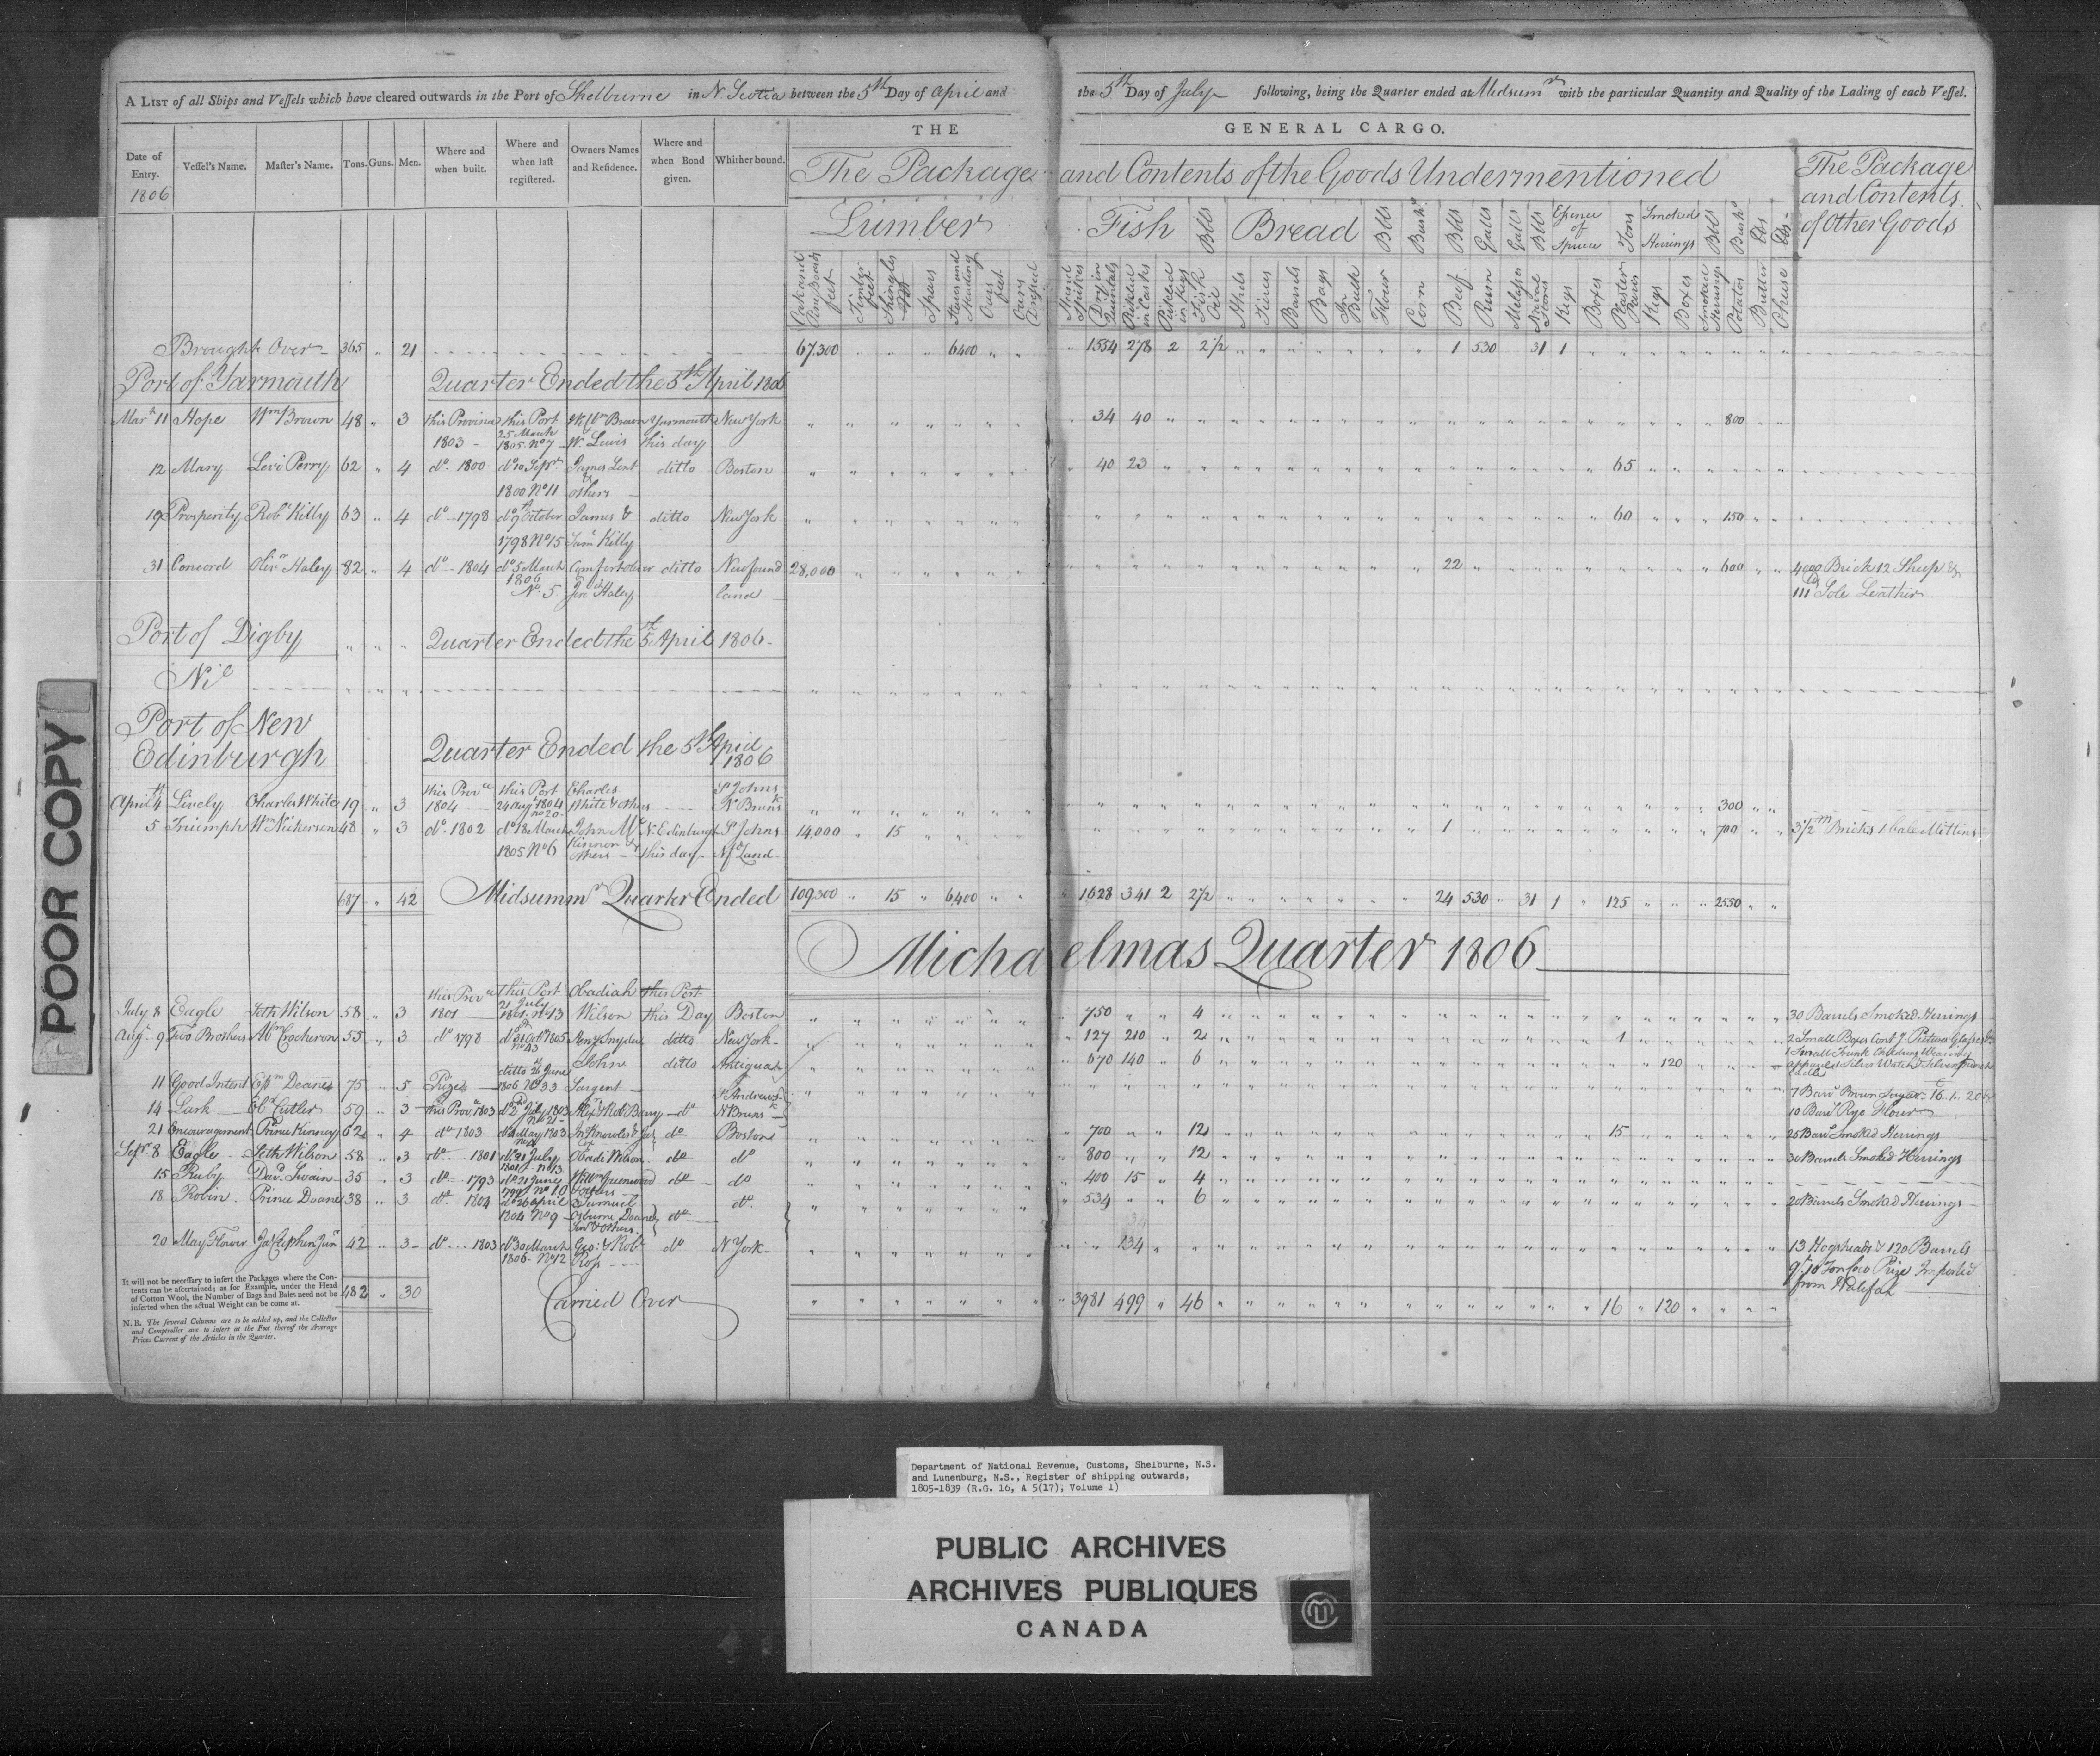 A LIST of all Ships and Vessels which have cleared outwards in the Port of Shelburne in N. Scotia between the 5th Day of April and the 5th Day of July following, being the Quarter ended at Midsumr with the particular Quantity and Quality of the Lading of each Vessel.
THE GENERAL CARGO.
Date of Entry. 1806 Vessel's Name. Master's Name. Tons. Guns. Men. Where and when built. Where and when last registered. Owners Names and Residence. Where and when Bond given. Whither bound.
The Package and Contents of the Goods Undermentioned
The Package and Contents of Other Goods
Lumber Fish Bbls Bread Bbls Bushs Bbls Galls Galls Bbls Essence of Spruce Tons Smoked Herrings Bbls Bushs
Timber feet Shingles M Spars Staves and Oars feet Dry in Quintals Pickled in Casks Pickled in Kegs Fish Oil Tierces Barrels Bags In Bulk Flour Corn Beef Rum Melasses Naval Stores Kegs Boxes Plaster Paris Kegs Boxes Smoked Herrings Potatos Butter Cheese
Brought Over 365 21 67,300 6400 1554 278 2 2 1/2 1 530 31 1
Port of Yarmouth Quarter Ended the 5th April 1806
Mar 11 Hope Wm Brown 48 3 this Province this Port Wm Brown Yarmouth New York 34 40 800
1803 25 March 1805 No 7 W. Lewis this day
12 Mary Levi Perry 62 4 do 1800 do 10 Septr James Lent ditto Boston 40 23 65
1800 No 11 & others
19 Prosperity Robt Killy 63 4 do 1798 do 9th October James & ditto New York 60 150
1798 No 15 Saml Killy
31 Concord Olivr Haley 82 4 do 1804 do 5 March Comfort ditto Newfound 28,000 22 600 4000 Brick 12 Sheep &
1806 No 5 Haley land 111 lbs Sole Leather
Port of Digby Quarter Ended the 5th April 1806
Nil
Port of New
Edinburgh Quarter Ended the 5th April 1806
April 4th Lively Charles White 19 3 this Prove 1804 this Port 24 Augt 1804 No 20 Charles White & others St Johns N Brunsk 300
5 Triumph Wm Nickerson 48 3 do 1802 do 18 March John Mc N. Edinburgh St Johns 14,000 15 1 700 3 1/2 m Bricks 1 bale Mittins
1805 No 6 Kinnon & others this day Nfd Land
687 42 Midsummr Quarter Ended 109,300 15 6400 1628 341 2 2 1/2 24 530 31 1 125 2550
Michaelmas Quarter 1806
July 8 Eagle Seth Wilson 58 3 this Prove 1801 this Port 21 July 1801 No 13 Obadiah Wilson this Port this Day Boston 750 4 30 Barrels Smoked Herrings
Augt 9 Two Brothers Abm Crocheron 55 3 do 1798 do 31 Octr 1805 No 43 Benj Snyder ditto New York 127 210 2 1 2 Small Boxes Contg Pictures Glasses &c
11 Good Intent Epm Deane 75 5 Prize ditto 26 June 1806 No 33 John Sargent ditto Antigua 670 140 6 120 1 Small Trunk Wearing apparel 1 Silver Watch
14 Lark Ebr Cutler 59 3 this Prove 1803 do 2d July 1803 No 21 Alexr & Robt Barry do St Andrews N Brunsk 7 Barrs Brown Sugar
10 Barrs Rye Flour
21 Encouragement Prince Kinney 62 4 do 1803 do May 1803 Jn Knowles & do Boston 700 12 15 25 Barrs Smoked Herrings
Septr 8 Eagle Seth Wilson 58 3 do 1801 do 21 July 1801 No 13 Obadh Wilson do do 800 12 30 Barrels Smoked Herrings
15 Ruby Davd Swain 35 3 do 1793 do 21 June No 10 Willm Greenwood & others do do 400 15 4
18 Robin Prince Doane 38 3 do 1804 do 26 April 1804 No 9 Samuel Osburne Doane Junr & others do do 534 6 20 Barrels Smoked Herrings
20 May Flower Jas Cephen Junr 42 3 do 1803 do 30 March 1806 No 12 Geo: & Robt Ross do N York 134 13 Hogsheads & 120 Barrels
Prize Imported from Halifax
482 30 Carried Over 3981 499 46 16 120
It will not be necessary to insert the Packages where the Contents can be ascertained; as for Example, under the Head of Cotton Wool, the Number of Bags and Bales need not be inserted when the actual Weight can be come at.
N.B. The several Columns are to be added up, and the Collector and Comptroller are to insert at the Foot thereof the Average Prices Current of the Articles in the Quarter.
POOR COPY
Department of National Revenue, Customs, Shelburne, N.S.
and Lunenburg, N.S., Register of shipping outwards,
1805-1839 (R.G. 16, A 5(17), Volume 1)
PUBLIC ARCHIVES
ARCHIVES PUBLIQUES
CANADA